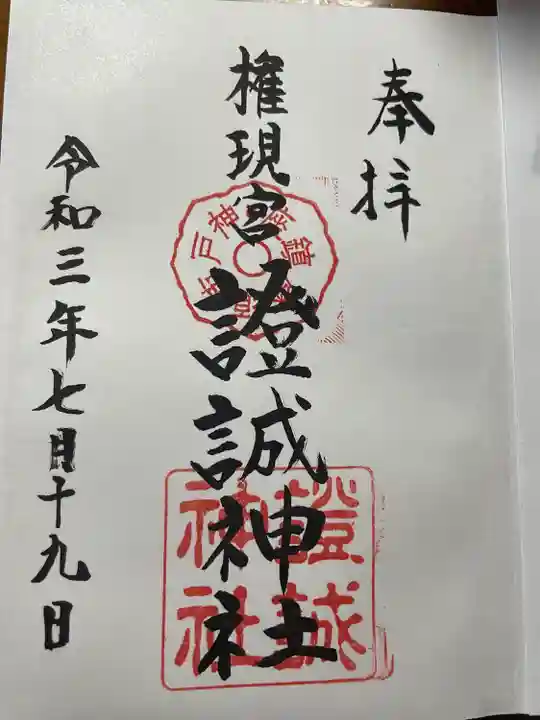 奉拝
権現宮
證誠神社
令和三年七月十九日
證誠
神社